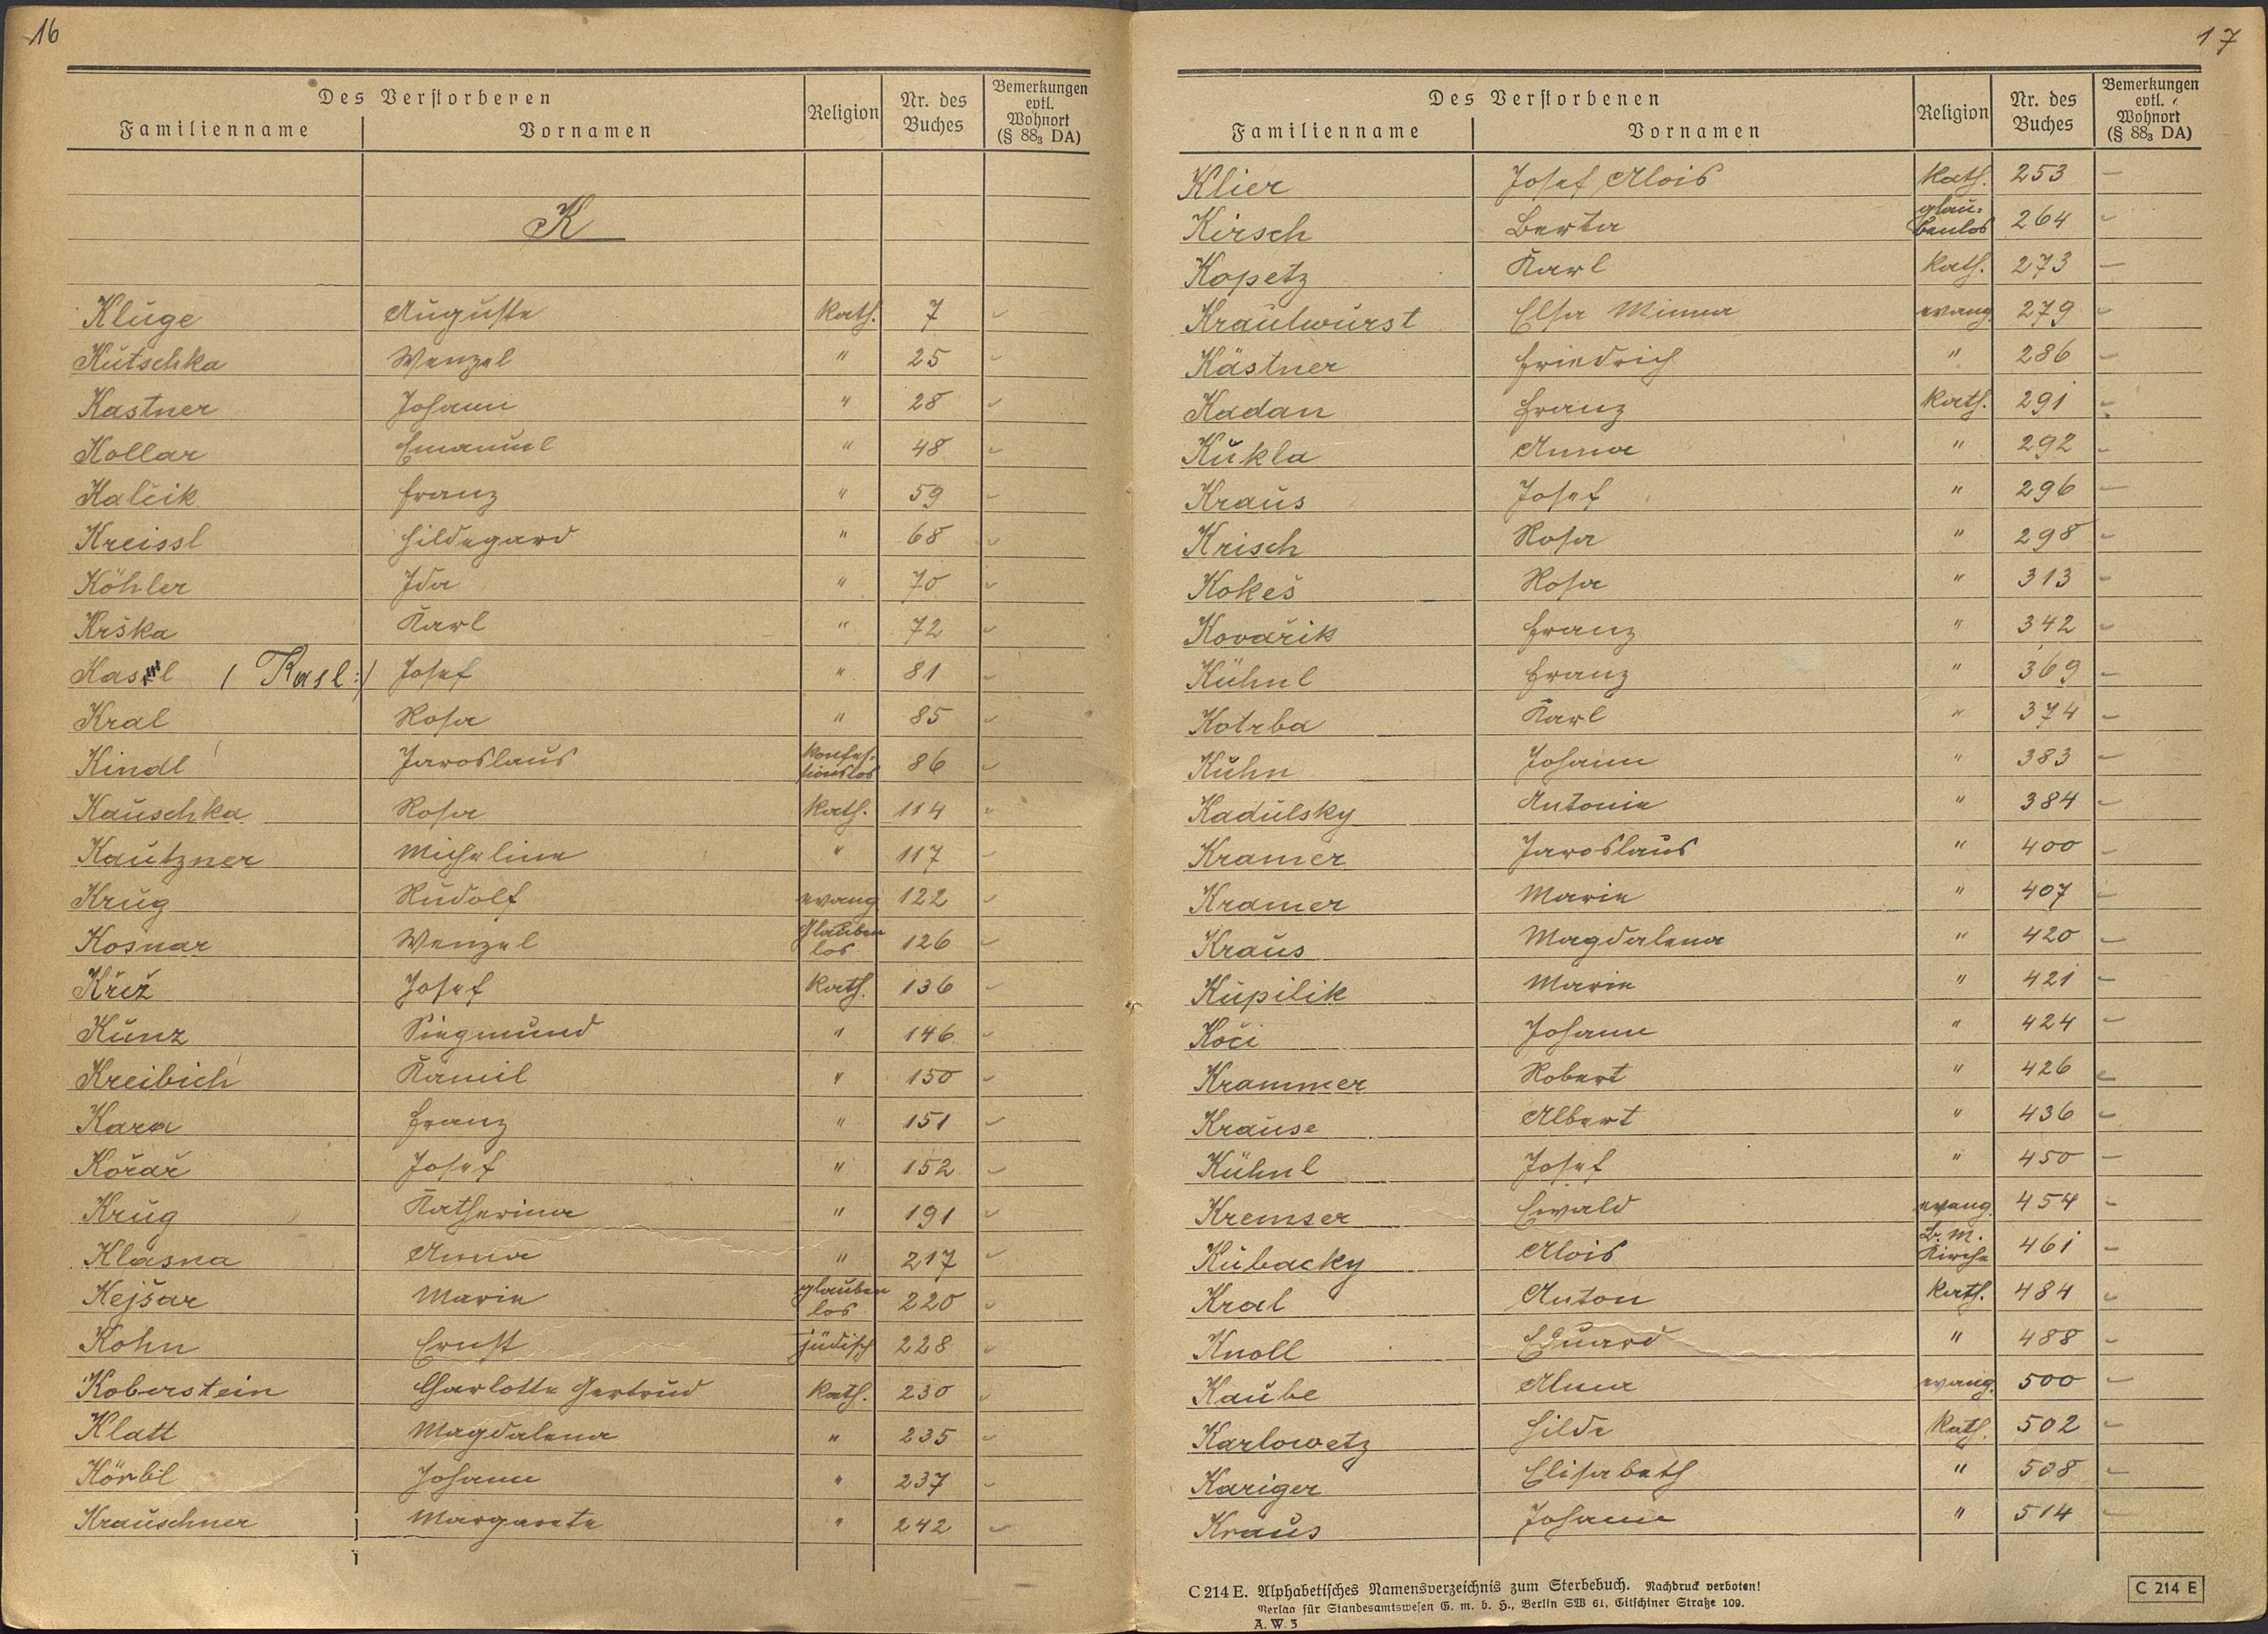 16
Des Verstorbenen
Familienname Vornamen Religion Nr. des Buches Bemerkungen evtl. Wohnort (§ 88₃ DA)
K
Kluge Auguste Kath. 7
Kutschka Wenzel " 25
Kastner Johann " 28
Kollar Emanuel " 48
Kalčik Franz " 59
Kreissl Hildegard " 68
Köhler Ida " 70
Krška Karl " 72
(Kasl:) Josef " 81
Kral Rosa " 85
Kindl Jaroslaus konfes-sionslos 86
Kauschka Rosa Kath. 114
Kautzner Micheline " 117
Krug Rudolf evang 122
Kosnar Wenzel Glauben los 126
Křiž Josef Kath. 136
Kunz Siegmund " 146
Kreibich Kamil " 150
Kara Franz " 151
Kořař Josef " 152
Krug Katherina " 191
Klasna Anna " 217
Kejšar Marie glauben los 220
Kohn Ernst jüdisch 228
Koberstein Charlotte Gertrud Kath. 230
Klatt Magdalena " 235
Körbl Johann " 237
Krauschner Margarete " 242
17
Des Verstorbenen
Familienname Vornamen Religion Nr. des Buches Bemerkungen evtl. Wohnort (§ 88₃ DA)
Klier Josef Alois Kath. 253 —
Kirsch Berta glau-benlos 264
Kopetz Karl Kath. 273 —
Krautwurst Elsa Minna evang. 279
Kästner Friedrich " 286
Kadan Franz Kath. 291
Kukla Anna " 292
Kraus Josef " 296 —
Krisch Rosa " 298
Kokeš Rosa " 313
Kovařik Franz " 342
Kühnl Franz " 369
Kotrba Karl " 374
Kuhn Johann " 383
Kadulsky Antonie " 384
Kramer Jaroslaus " 400
Kramer Marie " 407
Kraus Magdalena " 420
Kupilik Marie " 421
Koči Johann " 424
Krammer Robert " 426
Krause Albert " 436
Kühnl Josef " 450
Kremser Ewald evang. 454
Kubacky Alois B. M. Kirche 461
Kral Anton Kath. 484
Knoll Eduard " 488
Kaube Alma evang. 500
Karlowetz Hilde Kath. 502
Kariger Elisabeth " 508
Kraus Johann " 514
C 214 E. Alphabetisches Namensverzeichnis zum Sterbebuch. Nachdruck verboten!
Verlag für Standesamtswesen G. m. b. H., Berlin SW 61, Gitschiner Straße 109.
A. W. 3
C 214 E